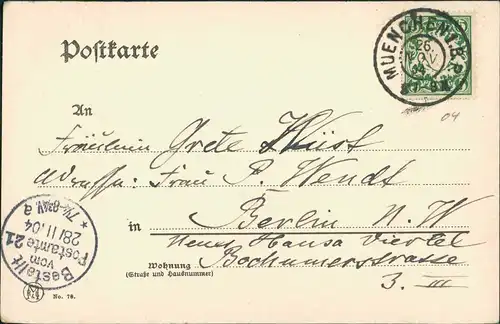 Postkarte
MUENCHEN I.B.P.
26. NOV
04
An
Fräulein Grete Wüst
Adresse: Frau P. Wendt
in Berlin N.W
neues Hansa Viertel
Wohnung
(Straße und Hausnummer)
Bochumerstrasse
3. III
Bestellt
vom
Postamte 21
28/11.04
7¼-8¼V.
No. 78.